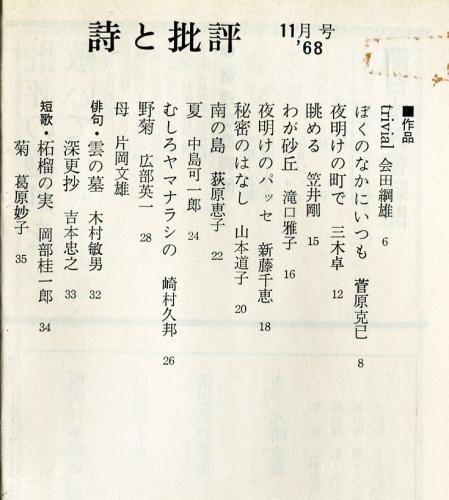 詩と批評 11月号 '68
■作品
trivial 会田綱雄 6
ぼくのなかにいつも 菅原克己 8
夜明けの町で 三木卓 12
眺める 笠井剛 15
わが砂丘 滝口雅子 16
夜明けのパッセ 新藤千恵 18
秘密のはなし 山本道子 20
南の島 荻原恵子 22
夏 中島可一郎 24
むしろヤマナラシの 崎村久邦 26
野菊 広部英一 28
母 片岡文雄
俳句・雲の墓 木村敏男 32
深更抄 吉本忠之 33
短歌・柘榴の実 岡部桂一郎 34
菊 葛原妙子 35